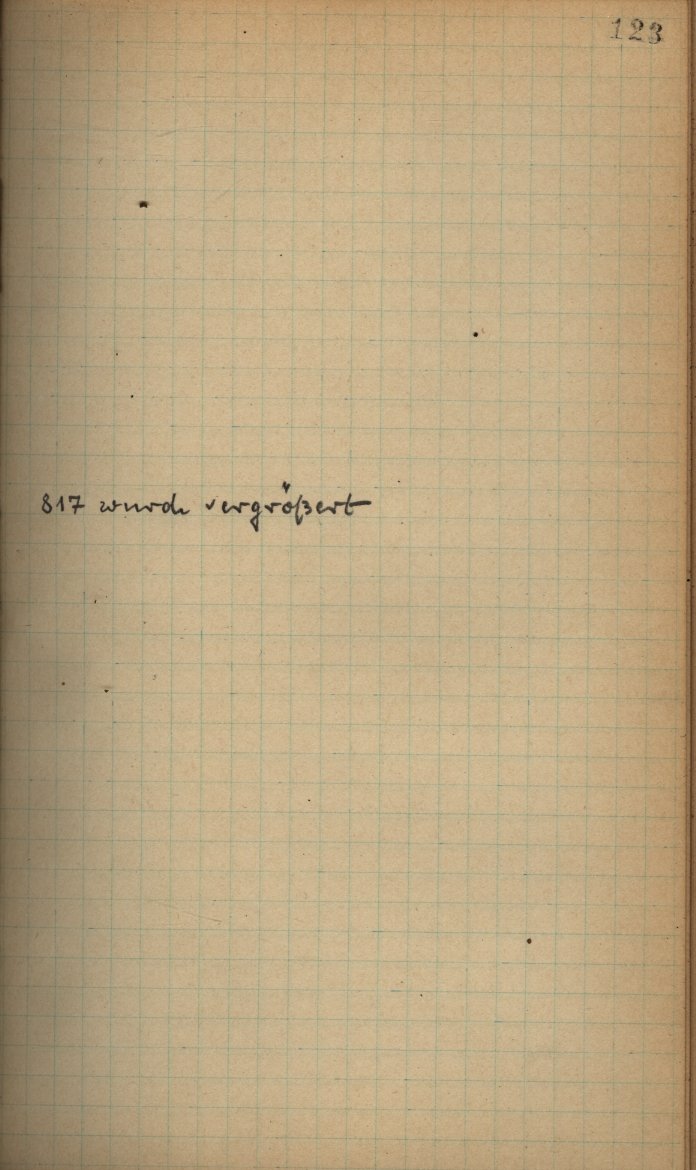 123
817 wurde vergrößert